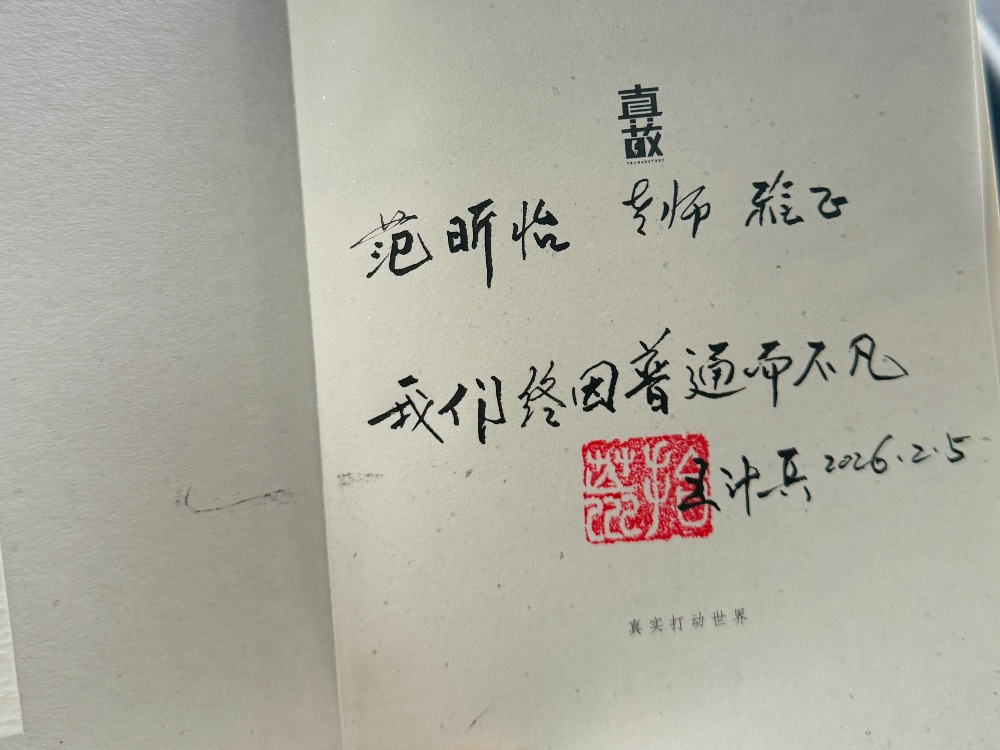 真故
范昕怡 老师 雅正
我们终因普通而不凡
王计兵 2026.2.5
真实打动世界